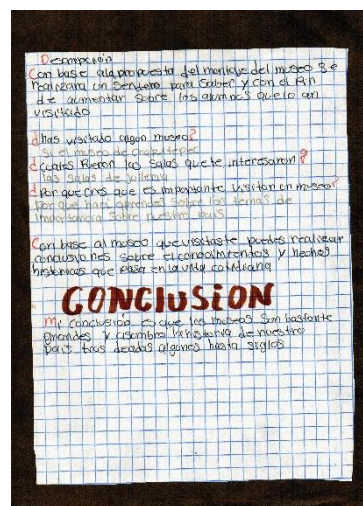 Descripción
Con base ala propuesta del montaje del museo se
realizara un Sendero para Saber y con el fin
de aumentar sobre los alumnos que lo an
visitado
¿has visitado algun museo?
Si el museo de chapultepec
¿cuales fueron las Salas que te interesaron?
las Salas de
¿Por que cres que es importante visitar un museo?
Por que haci aprendes sobre los temas de
importancia sobre nuestro pais
Con base al museo que visitaste puedes realizar
conclusiones sobre el conocimientos y hechos
historicos que pasa en la vida cotidiana
CONCLUSION
Mi conclusión es que los museos son bastante
grandes y asombra la historia de nuestro
pais tras decadas algunos hasta siglos